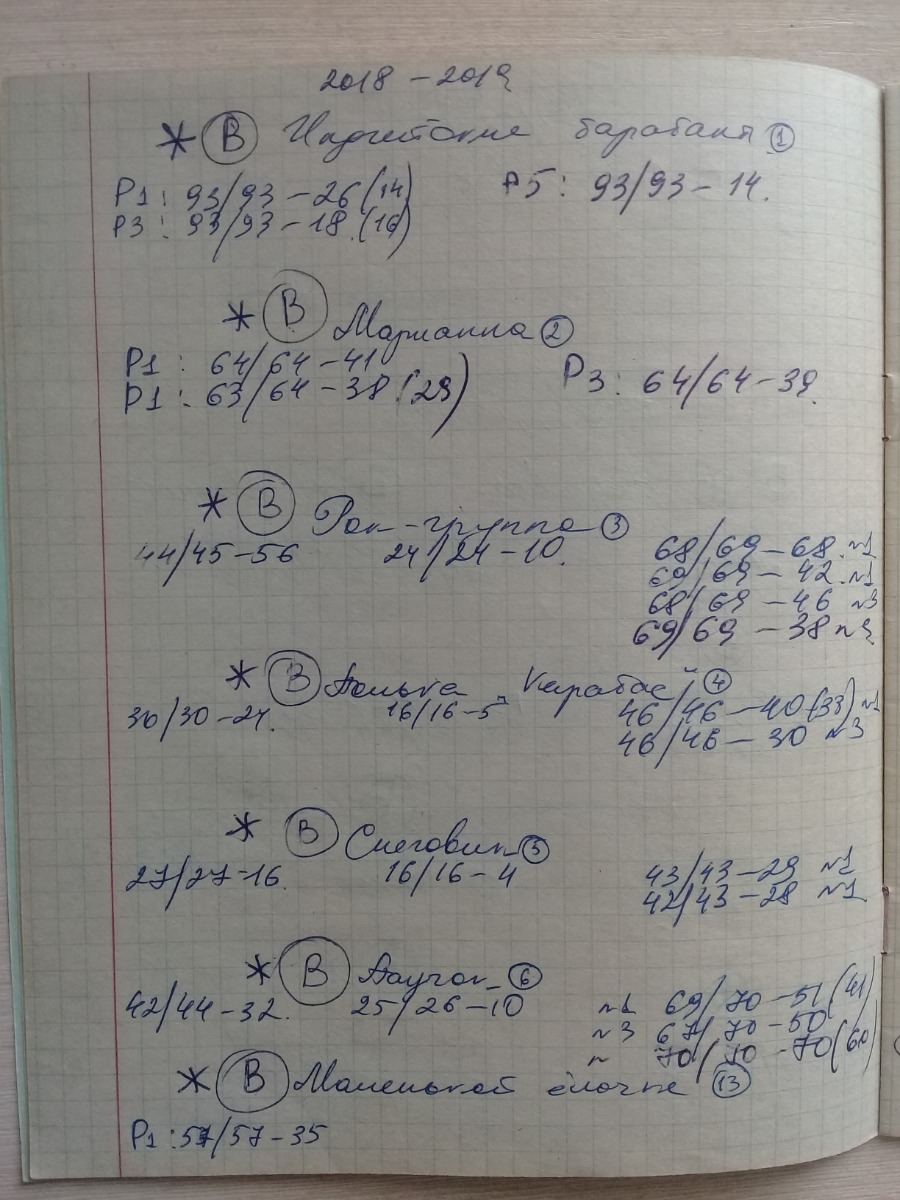 2018 – 2019
* В Индейские барабаны 1
P1: 93/93 – 26 (14) P5: 93/93 – 14.
P3: 93/93 – 18. (16)
* В Марианна 2
P1: 64/64 – 41 P3: 64/64 – 39.
P1: 63/64 – 38 (29)
* В Рок-группа 3
44/45 – 56 24/24 – 10. 68/69 – 68. №1
69/69 – 42. №1
68/69 – 46 №3
69/69 – 38 №3
* В Полька "Карабас" 4
30/30 – 24. 16/16 – 5 46/46 – 40 (33) №1
46/46 – 30 №3
* В Снеговик 5
27/27 – 16. 16/16 – 4 43/43 – 29 №1
42/43 – 28 №1
* В Паучок 6
42/44 – 32. 25/26 – 10 №1 69/70 – 51 (41)
№3 67/70 – 50
№ 70/70 – 70 (60)
* В Маленькой ёлочке 13
P1: 57/57 – 35